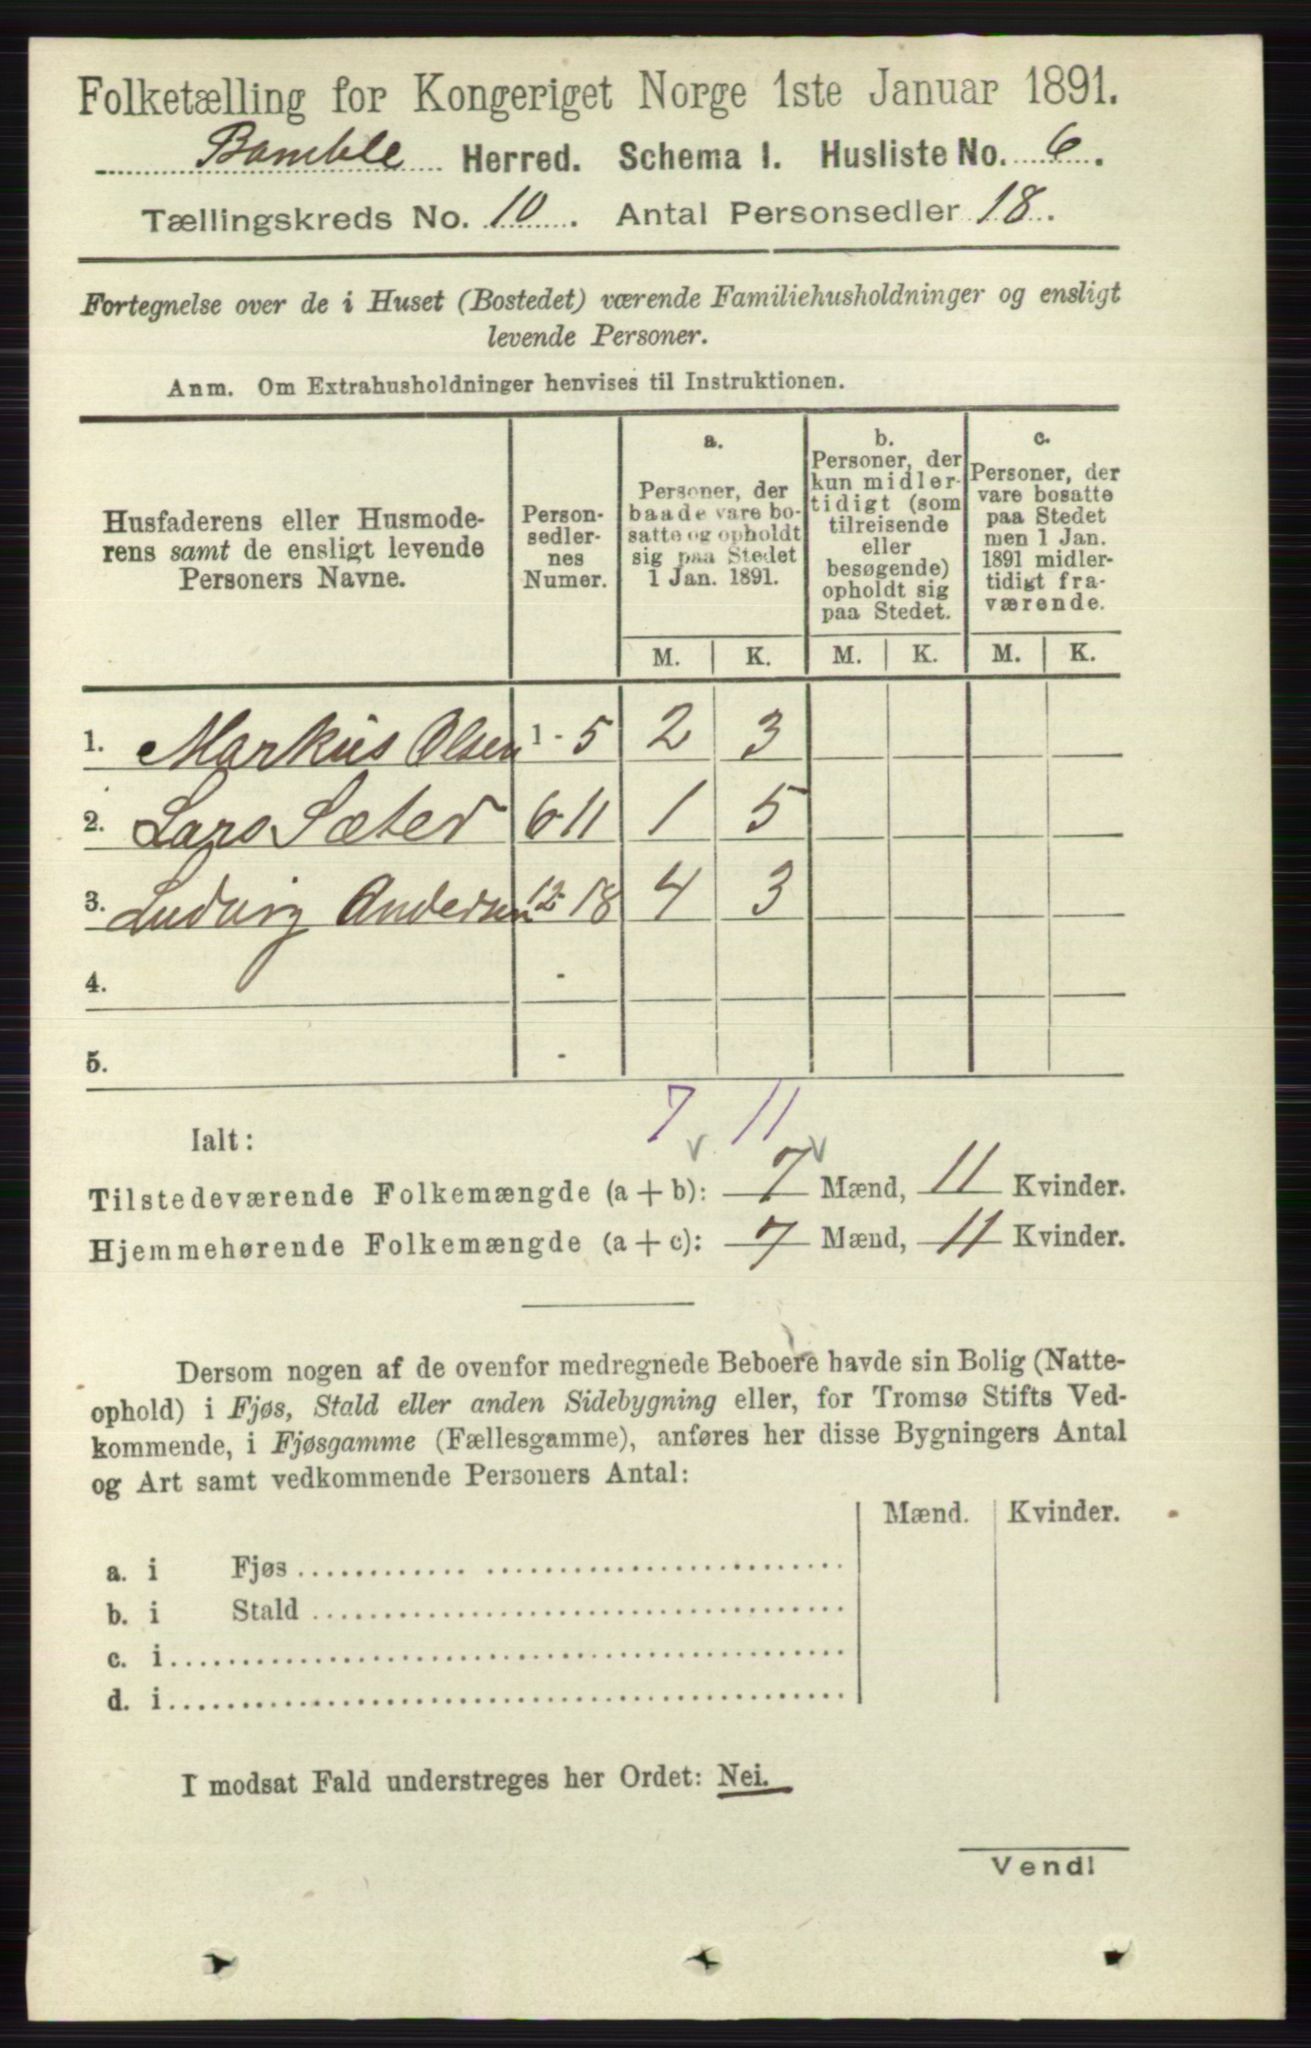 Folketælling for Kongeriget Norge 1ste Januar 1891.
Bamble Herred. Schema I. Husliste No. 6.
Tællingskreds No. 10. Antal Personsedler 18.
Fortegnelse over de i Huset (Bostedet) værende Familiehusholdninger og ensligt
levende Personer.
Anm. Om Extrahusholdninger henvises til Instruktionen.
Husfaderens eller Husmode-
rens samt de ensligt levende
Personers Navne.
Person-
sedler-
nes
Numer.
a.
Personer, der
baade vare bo-
satte og opholdt
sig paa Stedet
1 Jan. 1891.
b.
Personer, der
kun midler-
tidigt (som
tilreisende
eller
besøgende)
opholdt sig
paa Stedet.
c.
Personer, der
vare bosatte
paa Stedet
men 1 Jan.
1891 midler-
tidigt fra-
værende.
M. K. M. K. M. K.
1. Markus Olsen 1 - 5 2 3
2. Lars Sæter 6-11 1 5
3. Ludvig Andersen 12-18 4 3
4. -
5. -
7 11
Ialt:
Tilstedeværende Folkemængde (a + b): 7 Mænd, 11 Kvinder.
Hjemmehørende Folkemængde (a + c): 7 Mænd, 11 Kvinder.
Dersom nogen af de ovenfor medregnede Beboere havde sin Bolig (Natte-
ophold) i Fjøs, Stald eller anden Sidebygning eller, for Tromsø Stifts Ved-
kommende, i Fjøsgamme (Fællesgamme), anføres her disse Bygningers Antal
og Art samt vedkommende Personers Antal:
Mænd. Kvinder.
a. i Fjøs
b. i Stald
c. i
d. i
I modsat Fald understreges her Ordet: Nei.
Vend!